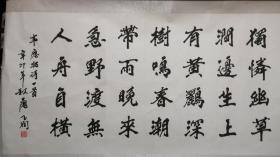 獨憐幽草
澗邊生上
有黃鸝深
樹鳴春潮
帶雨晚來
急野渡無
人舟自橫
韋應物詩一首
辛卯年